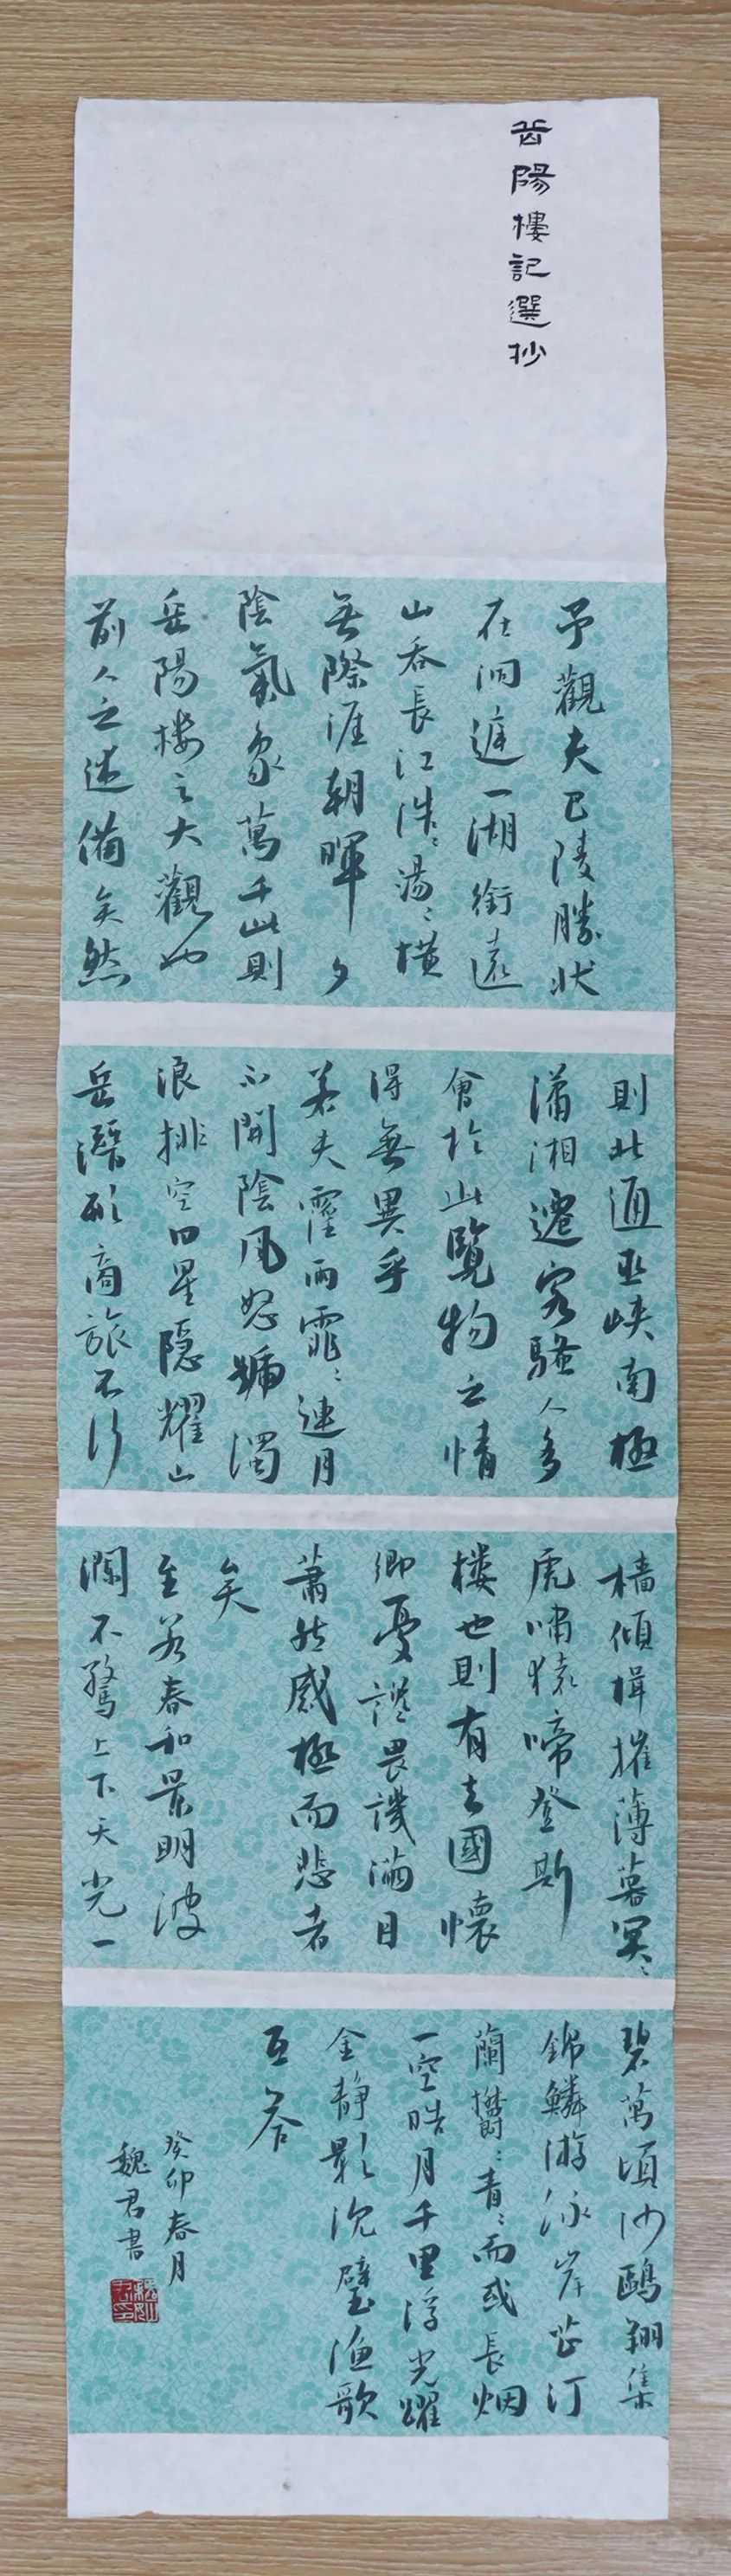 岳陽樓記選抄
予觀夫巴陵勝狀
在洞庭一湖銜遠
山吞長江浩〻湯〻橫
無際涯朝暉夕
陰氣象萬千此則
岳陽樓之大觀也
前人之述備矣然
則北通巫峽南極
瀟湘遷客騷人多
會於此覽物之情
得無異乎
若夫霪雨霏〻連月
不開陰風怒號濁
浪排空日星隱耀山
岳潛形商旅不行
檣傾楫摧薄暮冥〻
虎嘯猿啼登斯
樓也則有去國懷
鄉憂讒畏譏滿目
蕭然感極而悲者
矣
至若春和景明波
瀾不驚上下天光一
碧萬頃沙鷗翔集
錦鱗游泳岸芷汀
蘭鬱〻青〻而或長烟
一空皓月千里浮光躍
金靜影沉璧漁歌
互答
癸卯春月
魏君書